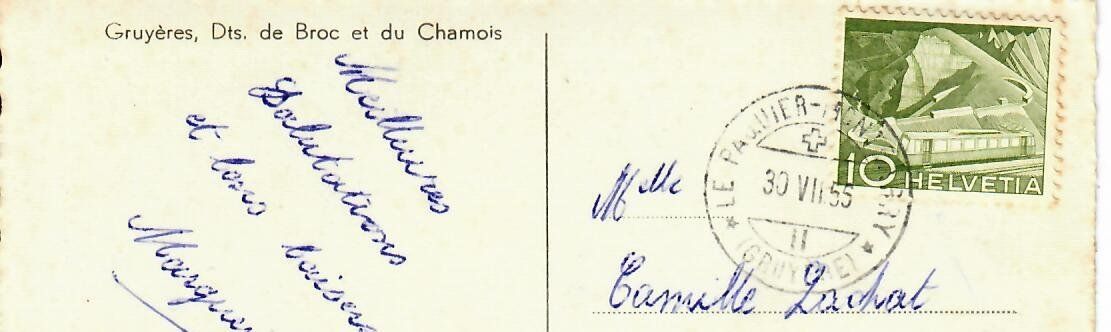 Gruyères, Dts. de Broc et du Chamois
Meilleures
Salutations
et bons baisers
10 HELVETIA
LE PAQUIER-MONTBARRY
30 VII 55
11
(GRUYERE)
Mlle
Camille Lachat